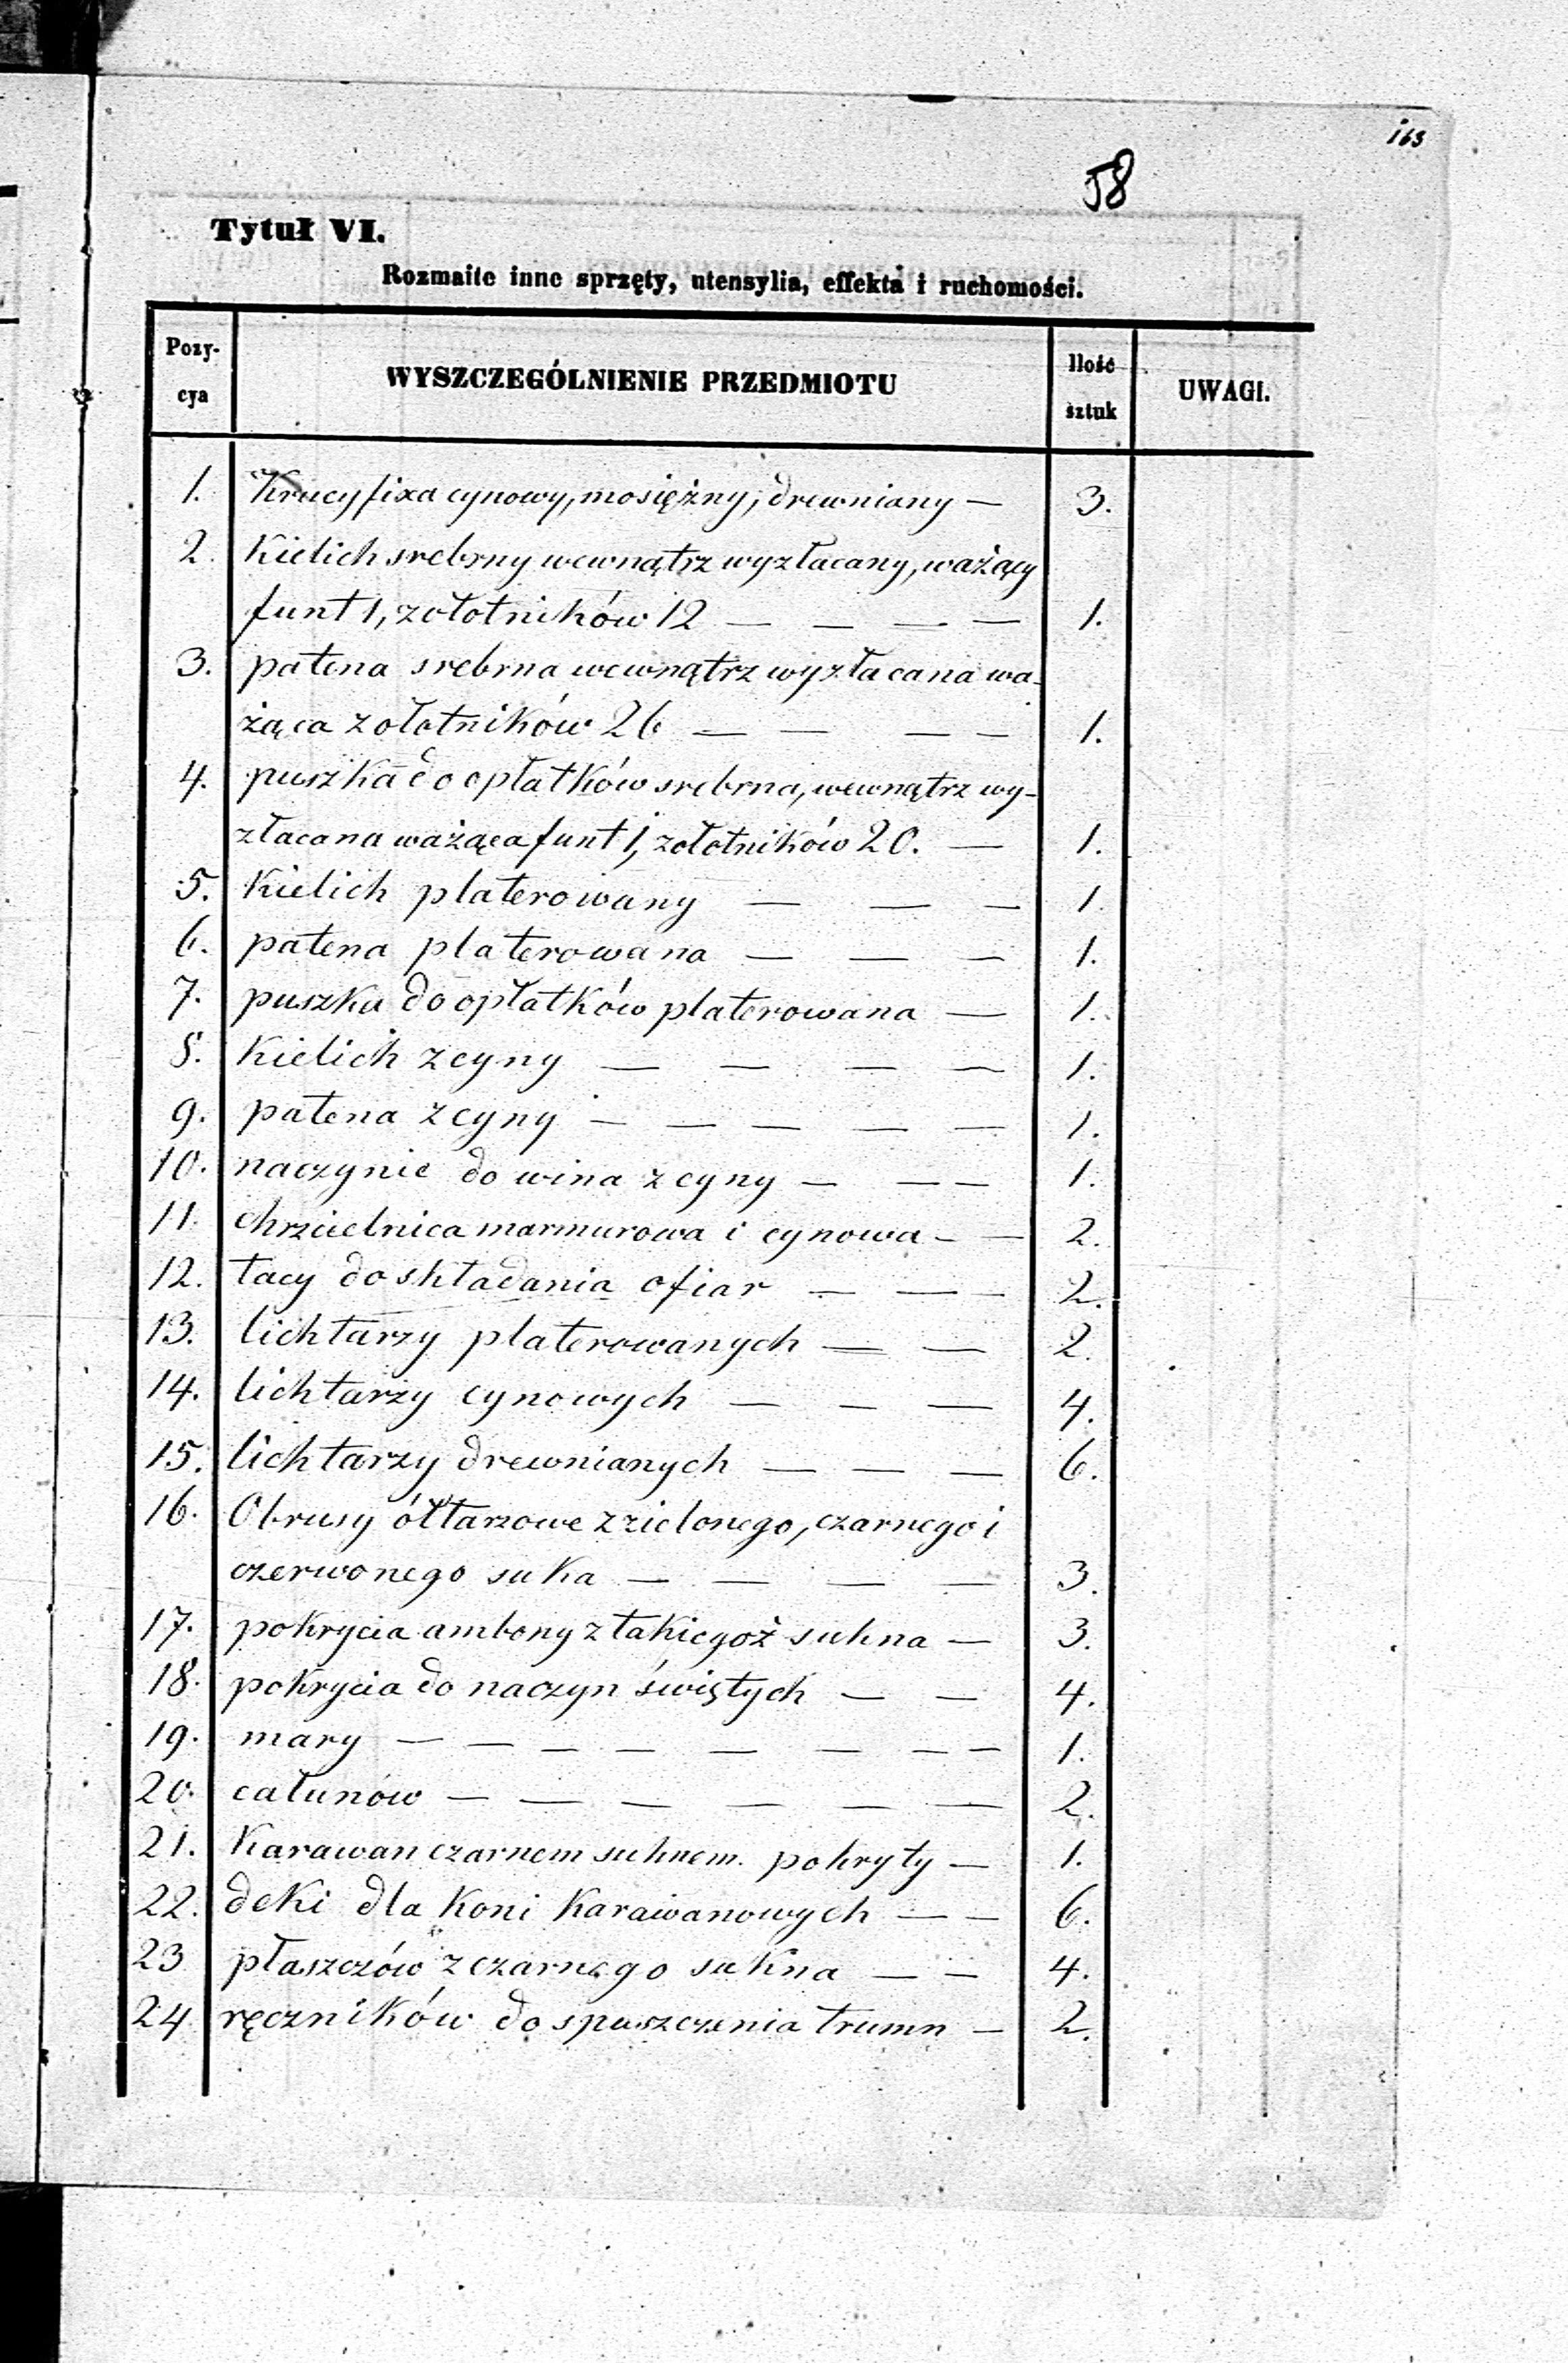 163
58
Tytuł VI.
Rozmaite inne sprzęty, utensylia, effekta i ruchomości.
Pozy-cya WYSZCZEGÓLNIENIE PRZEDMIOTU Ilość sztuk UWAGI.
1. Krucyfixa cynowy, mosiężny, drewniany — 3.
2. Kielich srebrny wewnątrz wyzłacany, ważący
funt 1, zołotników 12 — — — — 1.
3. patena srebrna wewnątrz wyzłacana wa-
żąca zołotników 26 — — — — 1.
4. puszka do opłatków srebrna, wewnątrz wy-
złacana ważąca funt 1, zołotników 20. — 1.
5. Kielich platerowany — — — 1.
6. patena platerowana — — — 1.
7. puszka do opłatków platerowana — 1.
8. Kielich z cyny — — — — 1.
9. patena z cyny — — — — — 1.
10. naczynie do wina z cyny — — — 1.
11. chrzcielnica marmurowa i cynowa — — 2.
12. tacy do składania ofiar — — — 2.
13. lichtarzy platerowanych — — 2.
14. lichtarzy cynowych — — — 4.
15. lichtarzy drewnianych — — — 6.
16. Obrusy ołtarzowe z zielonego, czarnego i
czerwonego suka — — — — 3.
17. pokrycia ambony z takiegoż sukna — 3.
18. pokrycia do naczyn świętych — — 4.
19. mary — — — — — — — — 1.
20. całunów — — — — — — 2.
21. Karawan czarnem suknem pokryty — 1.
22. deki dla koni karawanowych — — 6.
23 płaszczów z czarnego sukna — — 4.
24 ręczników do spuszczenia trumn — 2.